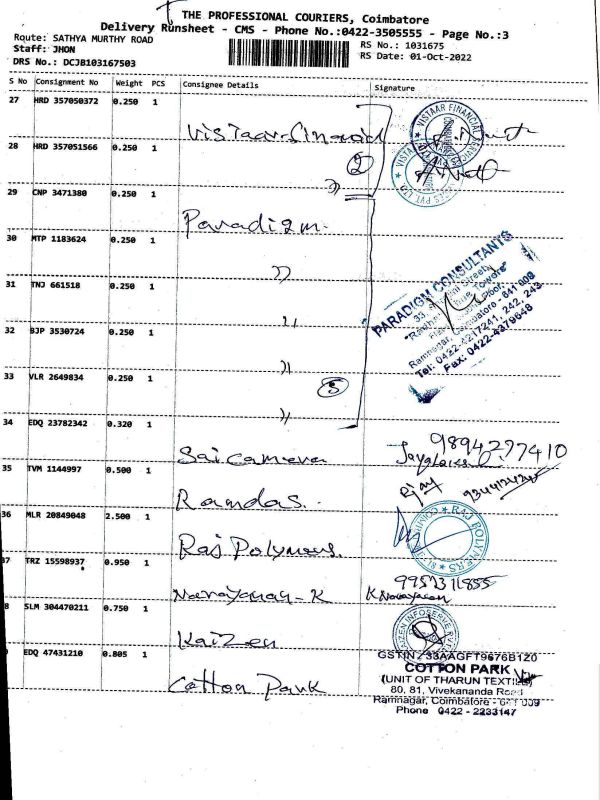 THE PROFESSIONAL COURIERS, Coimbatore
Delivery Runsheet - CMS - Phone No.:0422-3505555 - Page No.:3
Route: SATHYA MURTHY ROAD
Staff: JHON
DRS No.: DCJB103167503
RS No.: 1031675
RS Date: 01-Oct-2022
S No Consignment No Weight PCS Consignee Details Signature
27 HRD 357050372 0.250 1
Vistaar Financial
28 HRD 357051566 0.250 1
2
VISTAAR FINANCIAL
29 CNP 3471380 0.250 1
Paradigm.
30 MTP 1183624 0.250 1
31 TNJ 661518 0.250 1
PARADIGM CONSULTANTS
Ramnagar, Coimbatore - 641 009
Tel: 0422-4217241, 242, 243
Fax: 0422-4379648
32 BJP 3530724 0.250 1
33 VLR 2649834 0.250 1
5
34 EDQ 23782342 0.320 1
Sai Camera
9894277410
35 TVM 1144997 0.500 1
Ramdas.
36 MLR 20849048 2.500 1
Raj Polymers.
RAJ POLYMERS
37 TRZ 15598937 0.950 1
Narayanan - K
K Narayanan
8 SLM 304470211 0.750 1
Kaizen
KAIZEN INFOSERVE
EDQ 47431210 0.805 1
Cotton Park
GSTIN : 33AAGFT9676B1Z0
COTTON PARK
(UNIT OF THARUN TEXTILE)
80, 81, Vivekananda Road
Ramnagar, Coimbatore - 641 009
Phone 0422 - 2233147